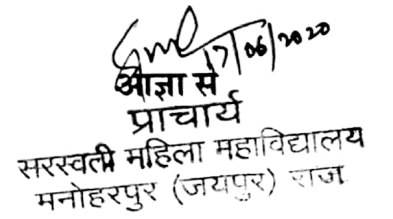 17/06/2020
आज्ञा से
प्राचार्य
सरस्वती महिला महाविद्यालय
मनोहरपुर (जयपुर) राज